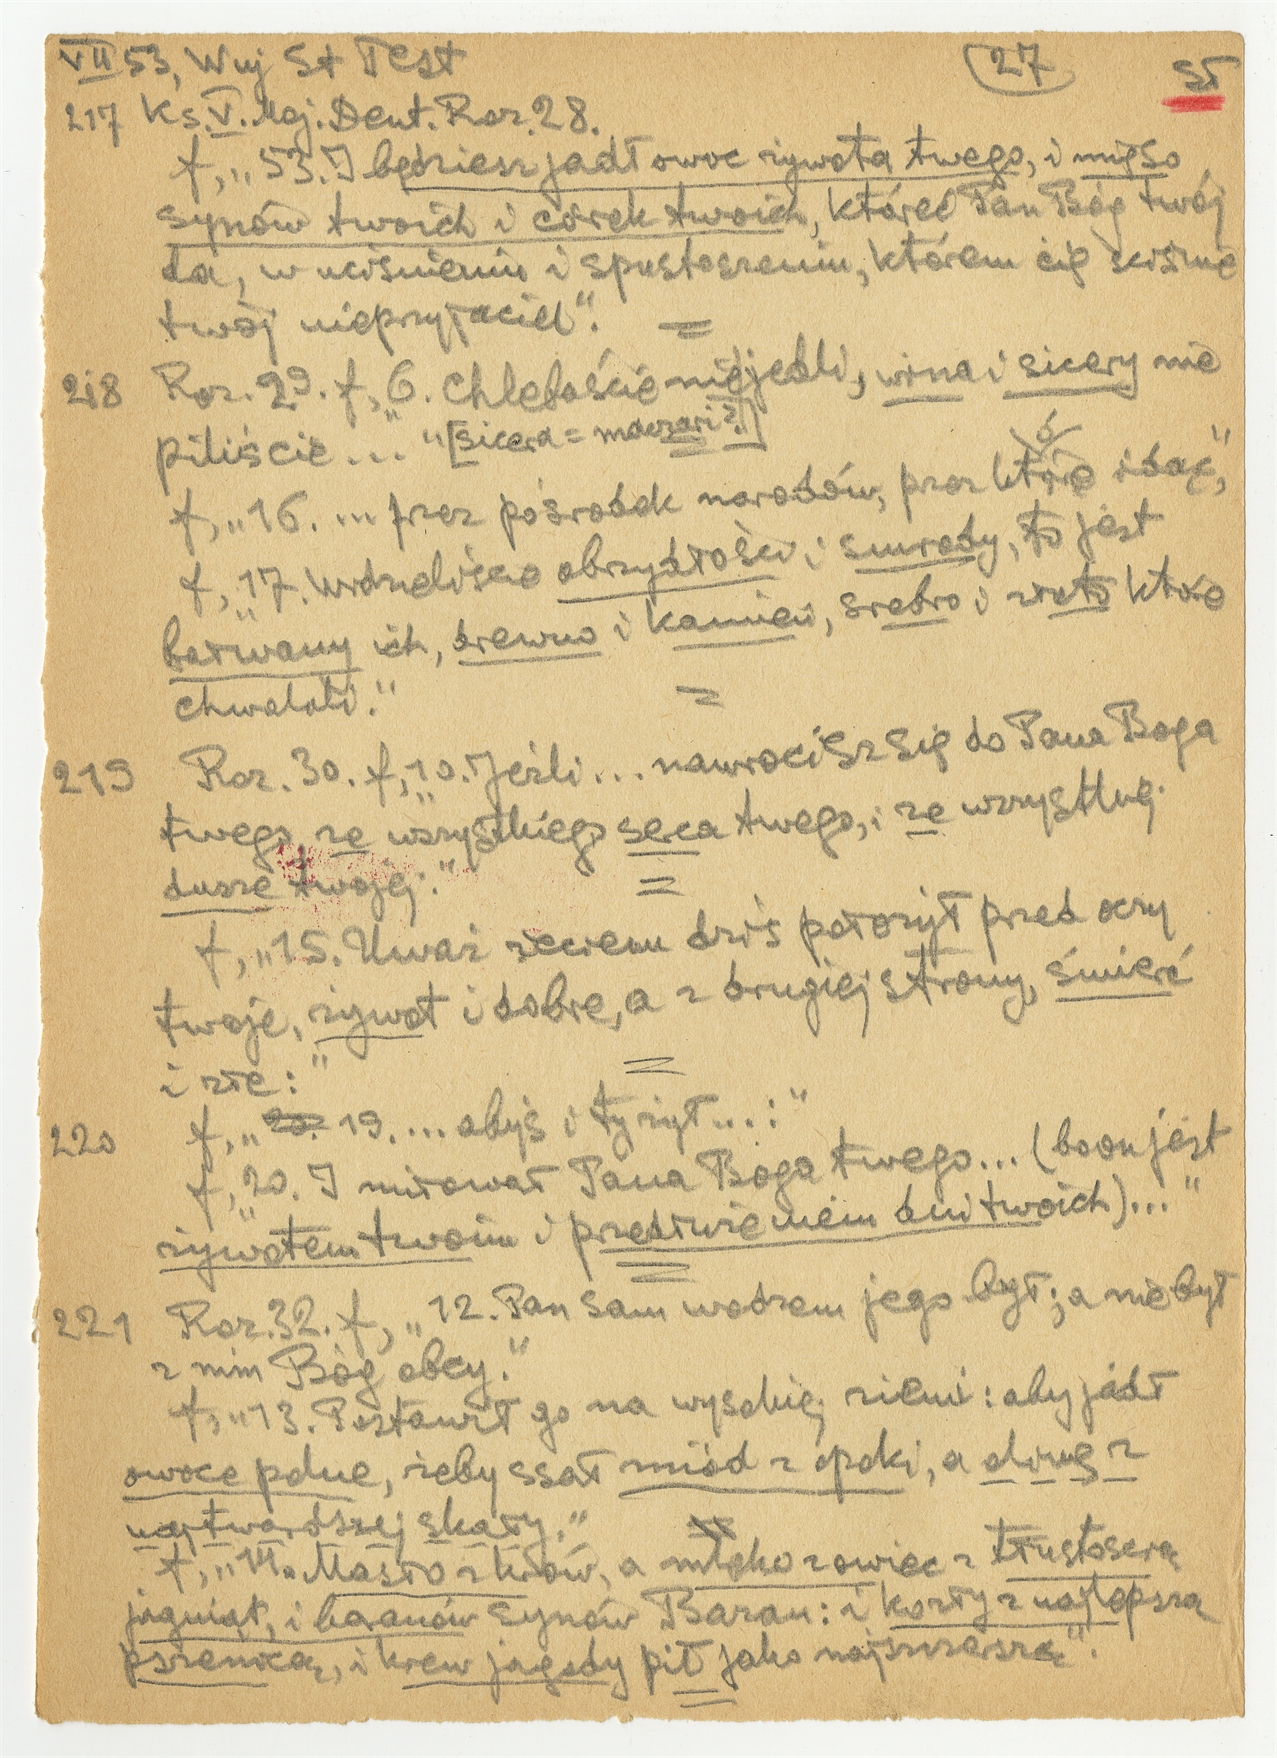 VII 53, Wuj St Test (27) ST
217 Ks. V. Moj. Deut. Roz. 28.
f, „53. I będziesz jadł owoc żywota twego, i mięso
synów twoich i córek twoich, któreć Pan Bóg twój
da, w uciśnieniu i spustoszeniu, którem cię ściśnie
twój nieprzyjaciel".
218 Roz. 29. f, „6. Chlebaście nie jedli, wina i sicery nie
piliście ..." [sicera =
f, „16. ... przez pośrodek narodów, przez które idąc,"
f, „17. Widzieliście obrzydłości i smrody, to jest
bałwany ich, drewno i kamień, srebro i złoto które
chwalili."
219 Roz. 30. f, „10. Jeśli ... nawrócisz się do Pana Boga
twego, ze wszystkiego serca twego, i ze wszystkiej
dusze twojej."
f, „15. Uważ żeciem dziś położył przed oczy
twoje, żywot i dobre, a z drugiej strony, śmierć
i złe:"
220 f, „20. 19. ... abyś i ty żył ...:"
f, „20. I miłował Pana Boga twego ... (bo on jest
żywotem twoim i przedłużeniem dni twoich) ..."
221 Roz. 32. f, „12. Pan sam wodzem jego był; a nie był
z nim Bóg obcy."
f, „13. Postawił go na wysokiej ziemi: aby jadł
owoce polne, żeby ssał miód z opoki, a oliwę z
najtwardszej skały."
f, „14. Masło z krów, a mleko z owiec z tłustością
jagniąt, i baranów synów Bazan: i kozły z najlepszą
pszenicą, i krew jagody pił jako najszczerszą".